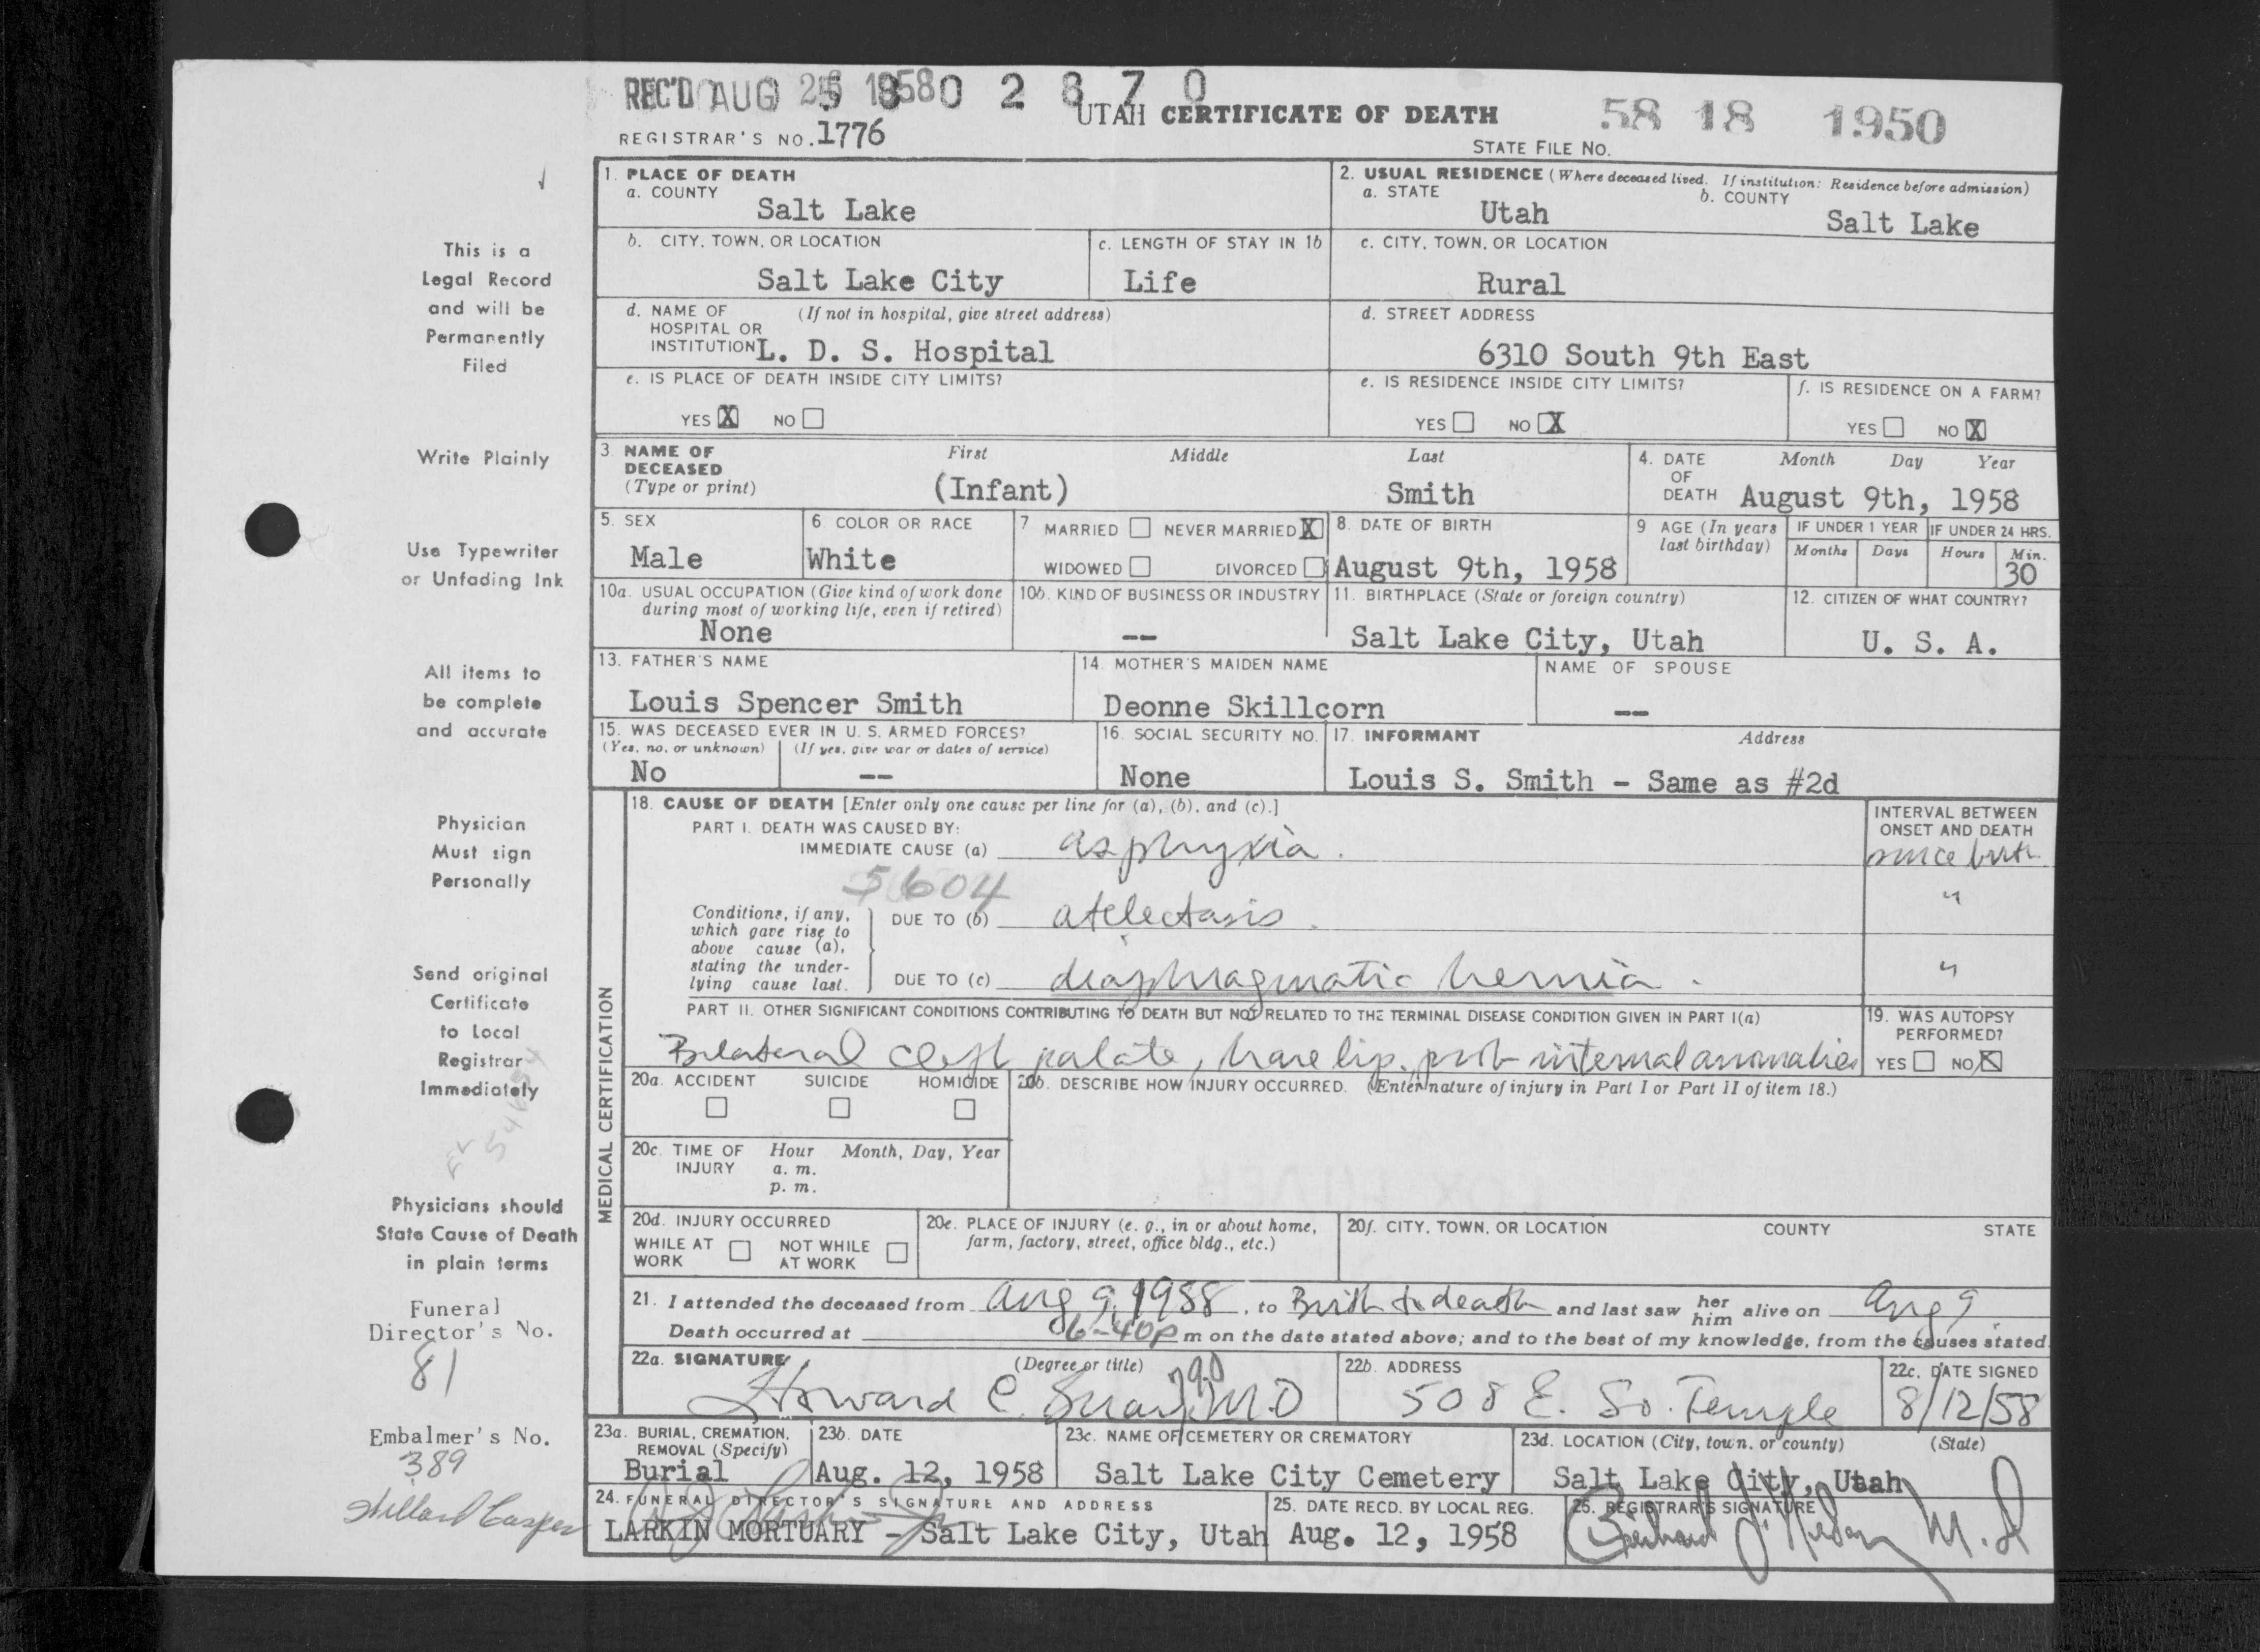 REC'D AUG 1958 0 2 8 7 0
UTAH CERTIFICATE OF DEATH
58 18 1950
REGISTRAR'S NO. 1776
STATE FILE NO.
1. PLACE OF DEATH
a. COUNTY
Salt Lake
2. USUAL RESIDENCE (Where deceased lived. If institution: Residence before admission)
a. STATE
Utah
b. COUNTY
Salt Lake
b. CITY, TOWN, OR LOCATION
Salt Lake City
c. LENGTH OF STAY IN 1b
Life
c. CITY, TOWN, OR LOCATION
Rural
d. NAME OF HOSPITAL OR INSTITUTION (If not in hospital, give street address)
L. D. S. Hospital
d. STREET ADDRESS
6310 South 9th East
e. IS PLACE OF DEATH INSIDE CITY LIMITS?
YES X NO
e. IS RESIDENCE INSIDE CITY LIMITS?
YES NO X
f. IS RESIDENCE ON A FARM?
YES NO X
3. NAME OF DECEASED (Type or print)
First Middle Last
(Infant) Smith
4. DATE OF DEATH Month Day Year
August 9th, 1958
5. SEX
Male
6. COLOR OR RACE
White
7 MARRIED NEVER MARRIED X
WIDOWED DIVORCED
8. DATE OF BIRTH
August 9th, 1958
9 AGE (In years last birthday)
IF UNDER 1 YEAR
Months Days
IF UNDER 24 HRS.
Hours Min.
30
10a. USUAL OCCUPATION (Give kind of work done during most of working life, even if retired)
None
10b. KIND OF BUSINESS OR INDUSTRY
--
11. BIRTHPLACE (State or foreign country)
Salt Lake City, Utah
12. CITIZEN OF WHAT COUNTRY?
U. S. A.
13. FATHER'S NAME
Louis Spencer Smith
14. MOTHER'S MAIDEN NAME
Deonne Skillcorn
NAME OF SPOUSE
--
15. WAS DECEASED EVER IN U. S. ARMED FORCES?
(Yes, no, or unknown) (If yes, give war or dates of service)
No --
16. SOCIAL SECURITY NO.
None
17. INFORMANT Address
Louis S. Smith - Same as #2d
MEDICAL CERTIFICATION
18. CAUSE OF DEATH [Enter only one cause per line for (a), (b), and (c).]
PART I. DEATH WAS CAUSED BY:
IMMEDIATE CAUSE (a) asphyxia.
INTERVAL BETWEEN ONSET AND DEATH
since birth
5604
Conditions, if any, which gave rise to above cause (a), stating the underlying cause last.
DUE TO (b) atelectasis. "
DUE TO (c) diaphragmatic hernia. "
PART II. OTHER SIGNIFICANT CONDITIONS CONTRIBUTING TO DEATH BUT NOT RELATED TO THE TERMINAL DISEASE CONDITION GIVEN IN PART I(a)
Bilateral cleft palate, hare lip, prob internal anomalies
19. WAS AUTOPSY PERFORMED?
YES NO X
20a. ACCIDENT SUICIDE HOMICIDE
20b. DESCRIBE HOW INJURY OCCURRED. (Enter nature of injury in Part I or Part II of item 18.)
20c. TIME OF INJURY Hour Month, Day, Year
a. m.
p. m.
20d. INJURY OCCURRED
WHILE AT WORK NOT WHILE AT WORK
20e. PLACE OF INJURY (e. g., in or about home, farm, factory, street, office bldg., etc.)
20f. CITY, TOWN, OR LOCATION COUNTY STATE
21. I attended the deceased from Aug 9, 1958, to Birth to death and last saw her him alive on Aug 9
Death occurred at 6-40p m on the date stated above; and to the best of my knowledge, from the causes stated.
22a. SIGNATURE (Degree or title)
Howard C. M.D
22b. ADDRESS
508 E. So. Temple
22c. DATE SIGNED
8/12/58
23a. BURIAL, CREMATION, REMOVAL (Specify)
Burial
23b. DATE
Aug. 12, 1958
23c. NAME OF CEMETERY OR CREMATORY
Salt Lake City Cemetery
23d. LOCATION (City, town, or county) (State)
Salt Lake City, Utah
24. FUNERAL DIRECTOR'S SIGNATURE AND ADDRESS
LARKIN MORTUARY - Salt Lake City, Utah
25. DATE RECD. BY LOCAL REG.
Aug. 12, 1958
26. REGISTRAR'S SIGNATURE
M.D
This is a
Legal Record
and will be
Permanently
Filed
Write Plainly
Use Typewriter
or Unfading Ink
All items to
be complete
and accurate
Physician
Must sign
Personally
Send original
Certificate
to Local
Registrar
Immediately
Physicians should
State Cause of Death
in plain terms
Funeral
Director's No.
81
Embalmer's No.
389
Willard Casper